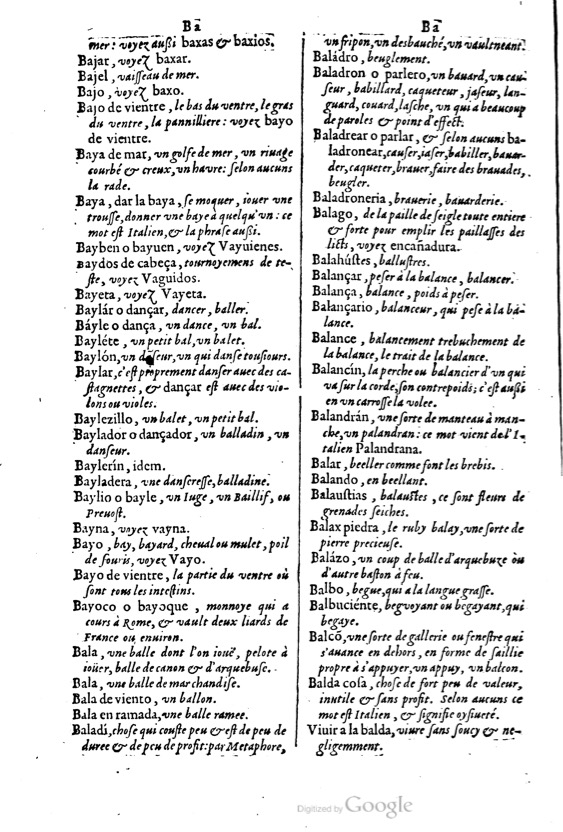 Ba
mer: voyez außi baxas & baxios.
Bajar, voyez baxar.
Bajel, vaisseau de mer.
Bajo, voyez baxo.
Bajo de vientre, le bas du ventre, le gras
du ventre, la pannilliere: voyez bayo
de vientre.
Baya de mar, vn golfe de mer, vn riuage
courbé & creux, vn havre: selon aucuns
la rade.
Baya, dar la baya, se moquer, iouer vne
trousse, donner vne baye à quelqu'vn: ce
mot est Italien, & la phrase außi.
Bayben o bayuen, voyez Vayuienes.
Baydos de cabeça, tournoyemens de te-
ste, voyez Vaguidos.
Bayeta, voyez Vayeta.
Baylár o dançar, dancer, baller.
Báyle o dança, vn dance, vn bal.
Bayléte, vn petit bal, vn balet.
Baylón, vn danseur, vn qui danse tousiours.
Baylar, c'est proprement danser auec des ca-
stagnettes, & dançar est auec des vio-
lons ou violes.
Baylezillo, vn balet, vn petit bal.
Baylador o dançador, vn balladin, vn
danseur.
Baylerín, idem.
Bayladera, vne danseresse, balladine.
Baylio o bayle, vn Iuge, vn Baillif, ou
Preuost.
Bayna, voyez vayna.
Bayo, bay, bayard, cheual ou mulet, poil
de souris, voyez Vayo.
Bayo de vientre, la partie du ventre où
sont tous les intestins.
Bayoco o bayoque, monnoye qui a
cours à Rome, & vault deux liards de
France ou enuiron.
Bala, vne balle dont l'on iouë, pelote à
ioüer, balle de canon & d'arquebuse.
Bala, vne balle de marchandise.
Bala de viento, vn ballon.
Bala en ramada, vne balle ramee.
Baladí, chose qui couste peu & est de peu de
duree & de peu de profit: par Metaphore,
Ba
vn fripon, vn desbauché, vn vaultneant.
Baládro, beuglement.
Baladron o parlero, vn bauard, vn cau-
seur, babillard, caqueteur, jaseur, lan-
guard, couard, lasche, vn qui a beaucoup
de paroles & points d'effect.
Baladrear o parlar, & selon aucuns ba-
ladronear, causer, iaser, babiller, bauar-
der, caqueter, brauer, faire des brauades,
beugler.
Baladroneria, brauerie, bauarderie.
Balago, de la paille de seigle toute entiere
& forte pour emplir les paillasses des
licts, voyez encañadura.
Balahústes, ballustres.
Balançar, peser à la balance, balancer.
Balança, balance, poids à peser.
Balançario, balanceur, qui pese à la ba-
lance.
Balance, balancement trebuchement de
la balance, le trait de la balance.
Balancín, la perche ou balancier d'vn qui
va sur la corde, son contrepoids; c'est außi
en vn carrosse la volee.
Balandrán, vne sorte de manteau à man-
che, vn palandran: ce mot vient de l'I-
talien Palandrana.
Balar, beeller comme font les brebis.
Balando, en beellant.
Balaustias, balaustes, ce sont fleurs de
grenades seiches.
Balax piedra, le ruby balay, vne sorte de
pierre precieuse.
Balázo, vn coup de balle d'arquebuze ou
d'autre baston à feu.
Balbo, begue, qui a la langue grasse.
Balbuciénte, begvoyant ou begayant, qui
begaye.
Balcõ, vne sorte de gallerie ou fenestre qui
s'auance en dehors, en forme de saillie
propre à s'appuyer, vn appuy, vn balcon.
Balda cosa, chose de fort peu de valeur,
inutile & sans profit. Selon aucuns ce
mot est Italien, & signifie oysiueté.
Viuir a la balda, viure sans soucy & ne-
gligemment.
Digitized by Google